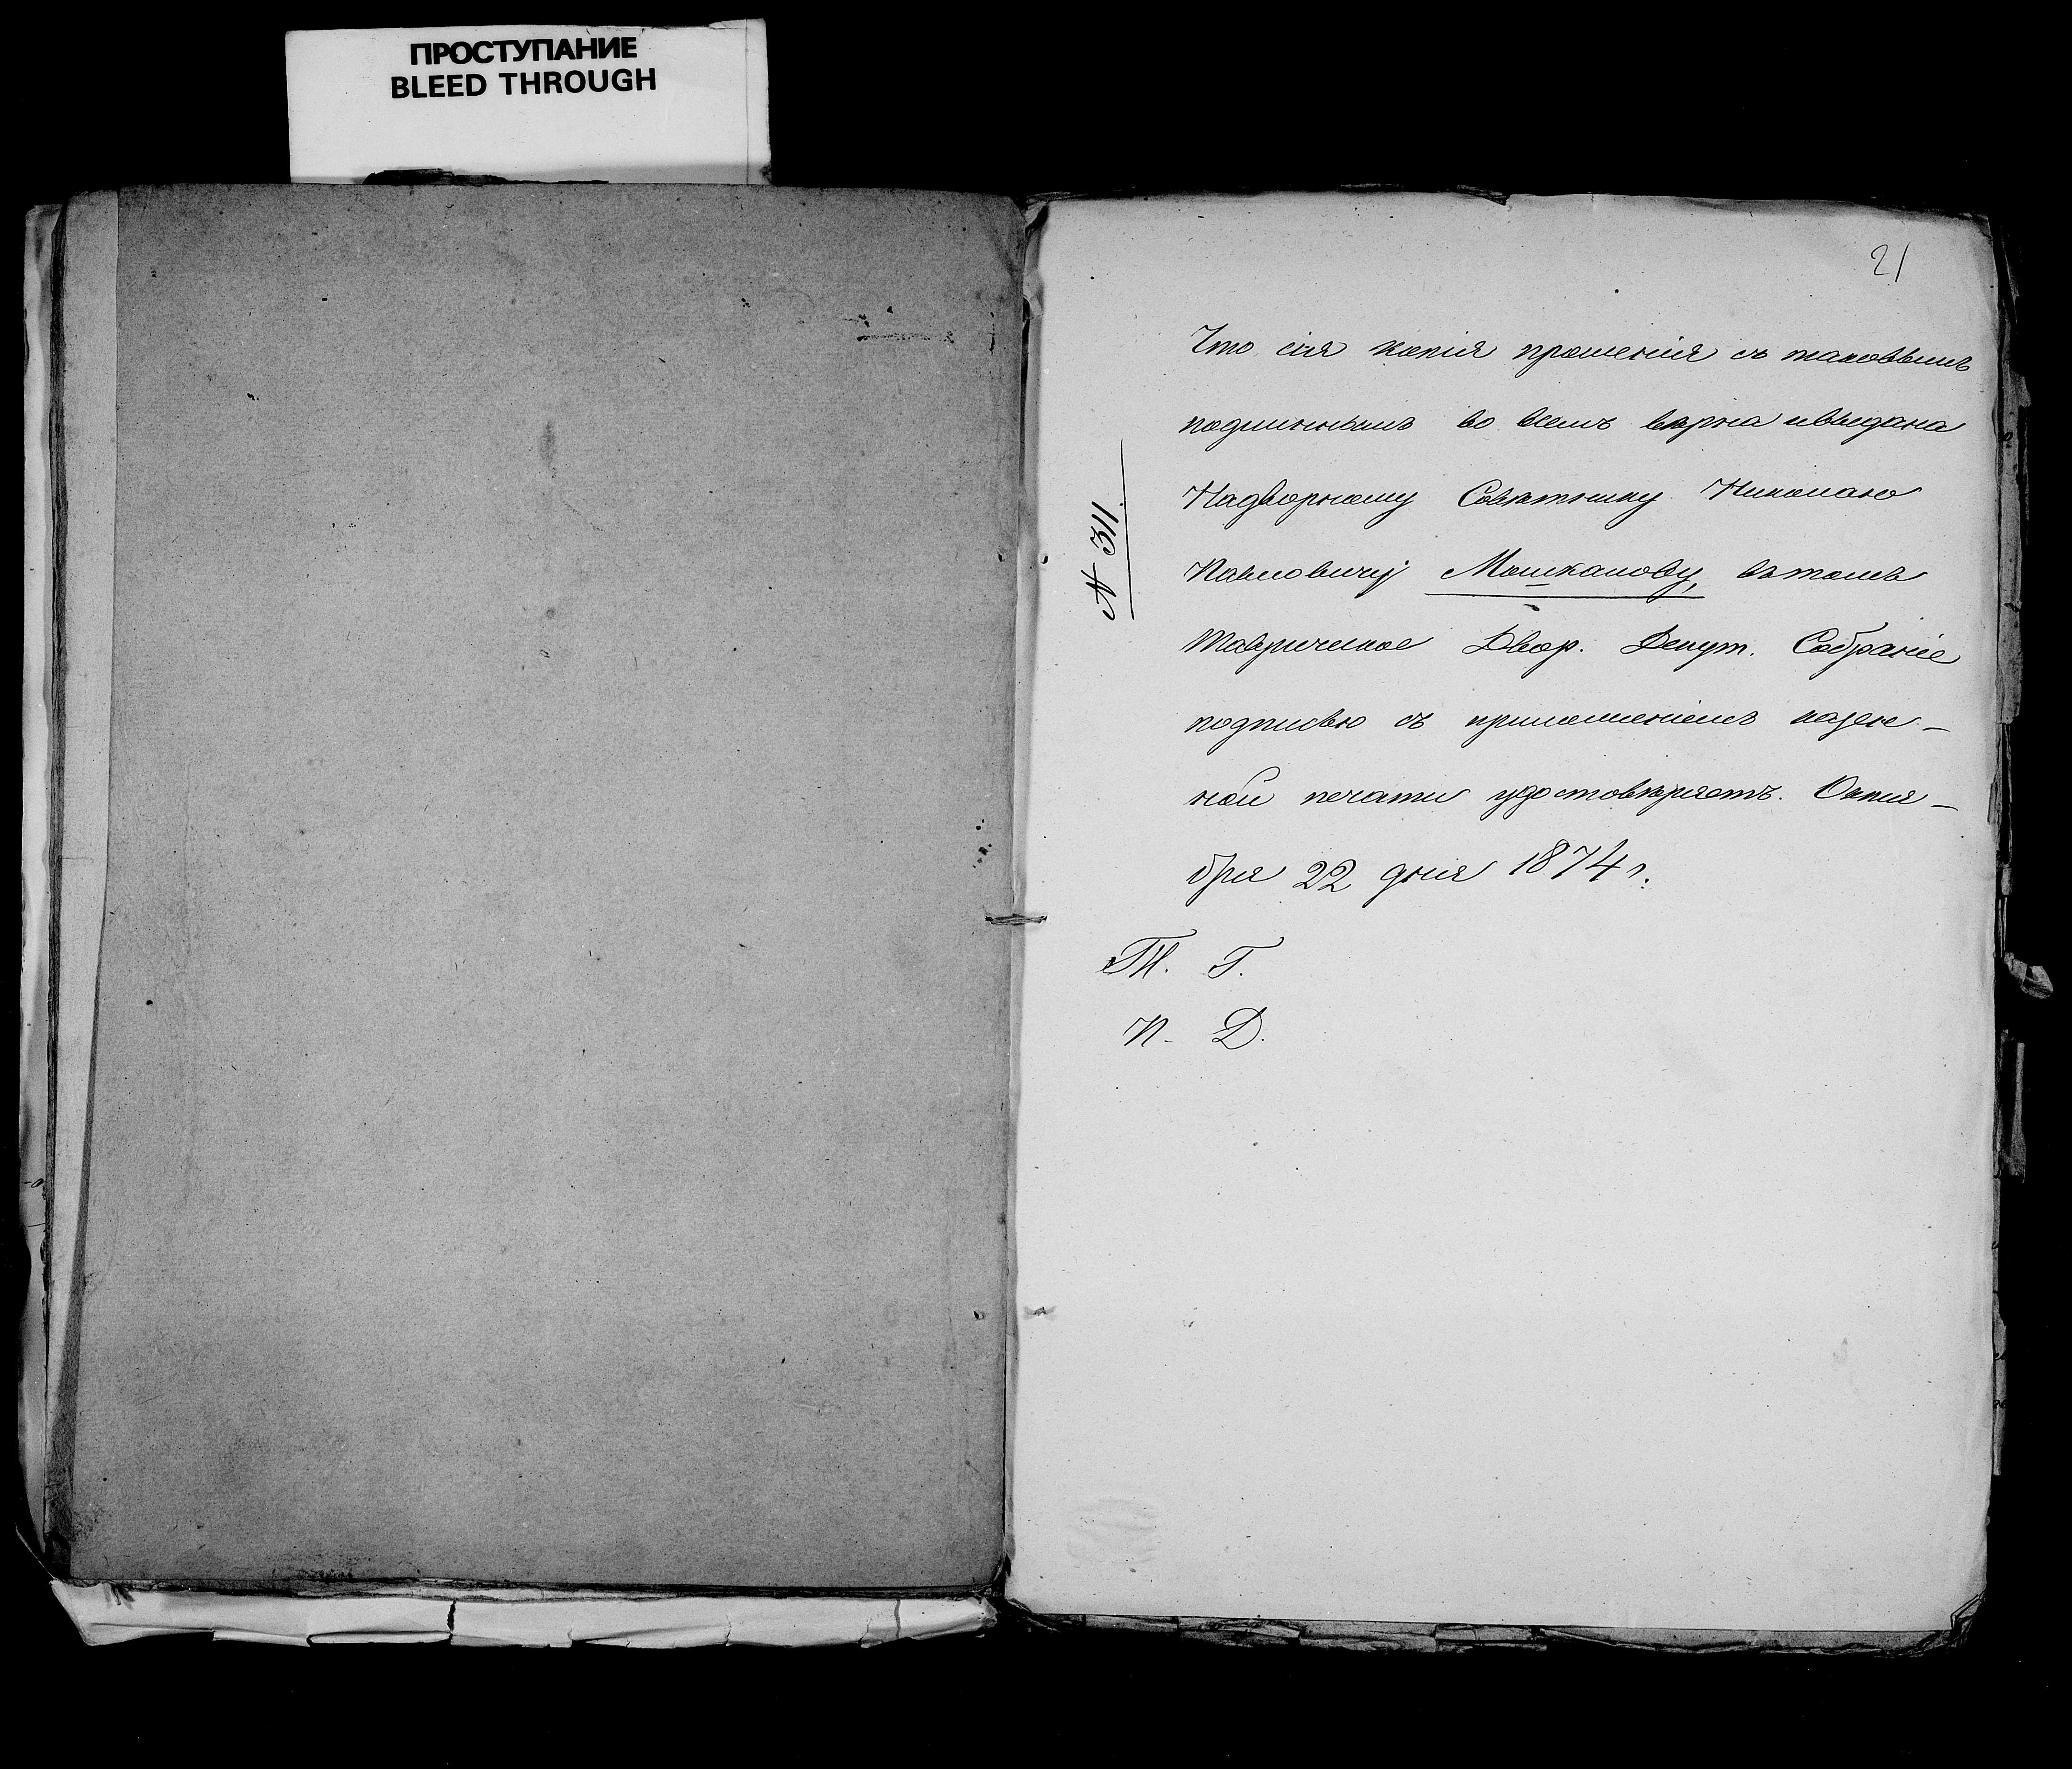 ПРОСТУПАНИЕ
BLEED THROUGH
21
Что сія копія прошенія съ таковымъ
подлиннымъ во всемъ вѣрна и выдана
Надворному Совѣтнику Николаю
Павловичу Мошкалову, въ томъ
Таврическое Двор. Депут. Собраніе
подписью съ приложеніемъ казен-
ной печати удостовѣряетъ. Октя-
бря 22 дня 1874 г.
№ 311.
Т. Г.
П. Д.